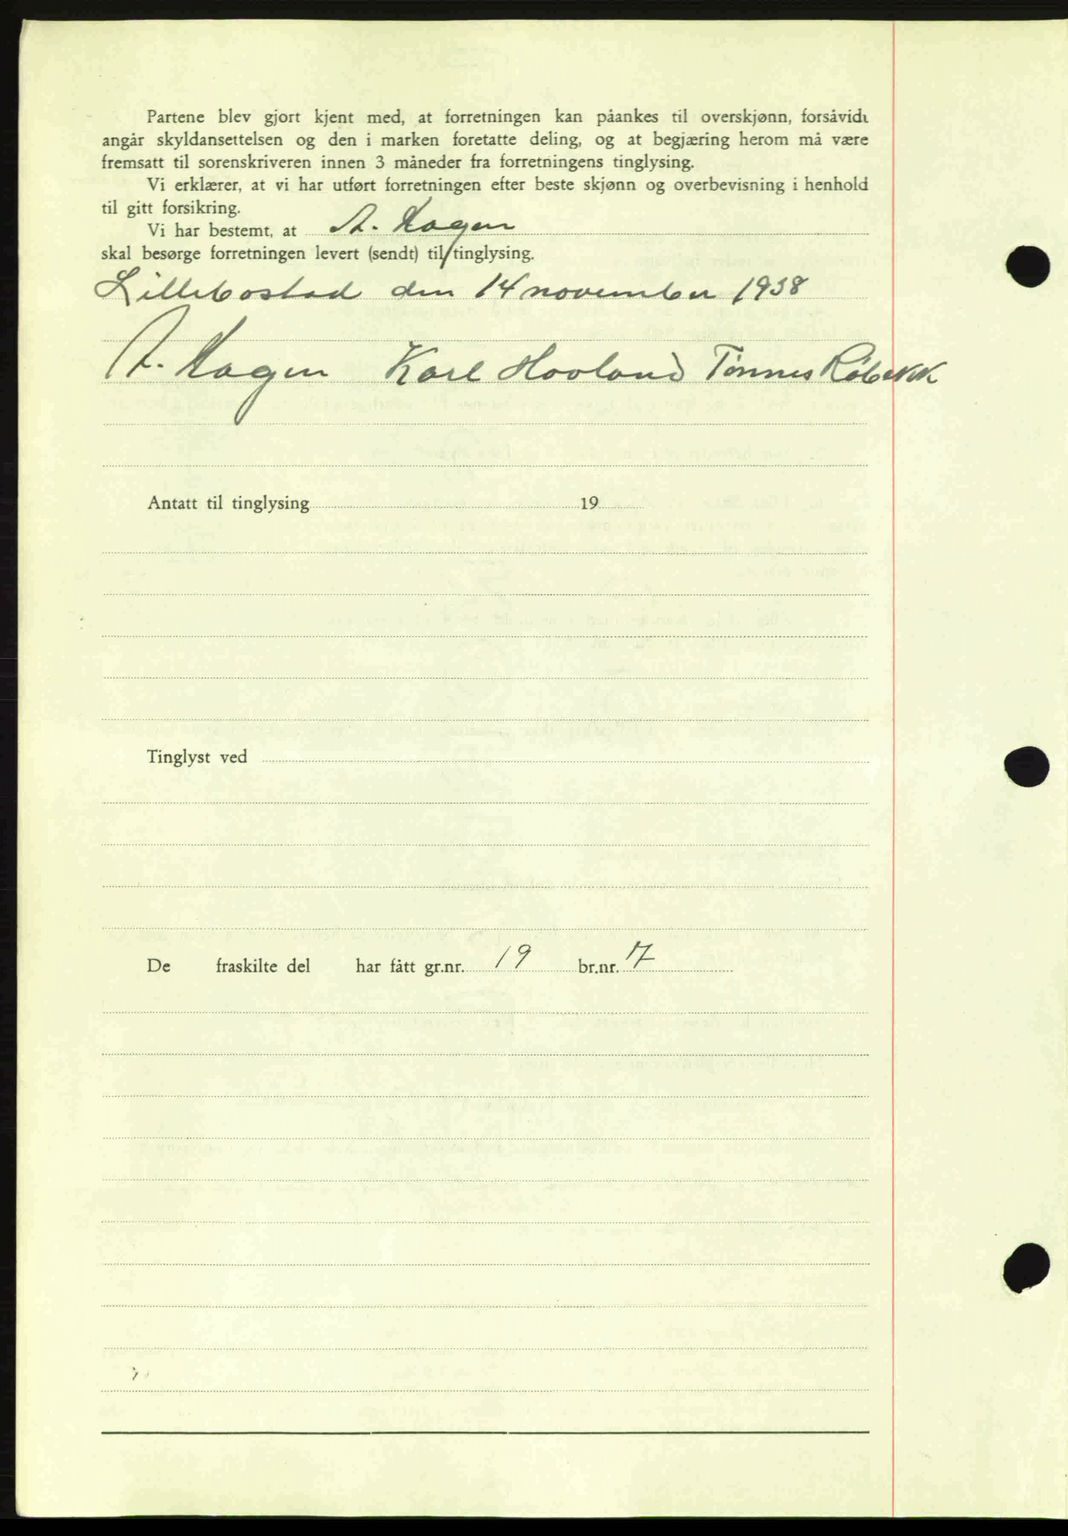 Partene blev gjort kjent med, at forretningen kan påankes til overskjønn, forsåvidt
angår skyldansettelsen og den i marken foretatte deling, og at begjæring herom må være
fremsatt til sorenskriveren innen 3 måneder fra forretningens tinglysing.
Vi erklærer, at vi har utført forretningen efter beste skjønn og overbevisning i henhold
til gitt forsikring.
Vi har bestemt, at A. Hagen
skal besørge forretningen levert (sendt) til tinglysing.
Lillebostad den 14 november 1938
A. Hagen Karl Hovland Tønnes Röbekk
Antatt til tinglysing 19
Tinglyst ved
De fraskilte del har fått gr.nr. 19 br.nr. 7